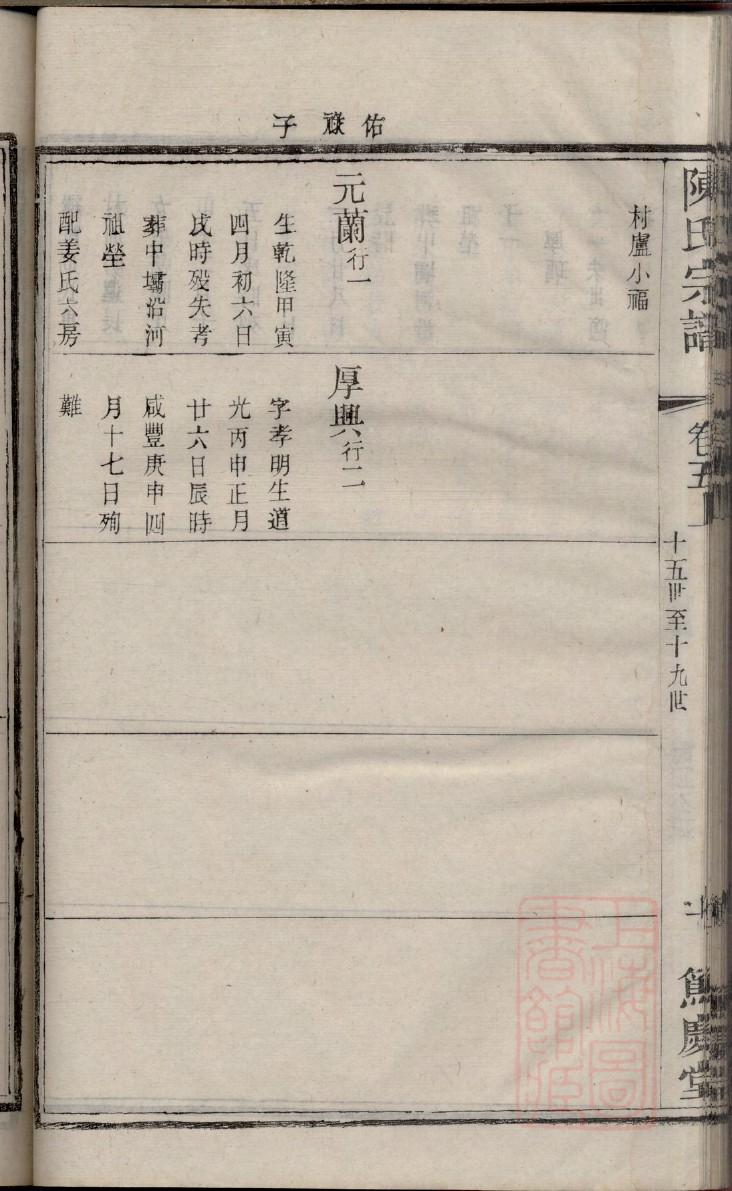 陳氏宗譜
卷五
十五世至十九世
篤慶堂
佑祿子
村盧小福
元蘭行一
生乾隆甲寅
四月初六日
戌時歿失考
葬中壩沿河
祖塋
配姜氏六房
厚興行二
字孝明生道
光丙申正月
廿六日辰時
咸豐庚申四
月十七日殉
難
上海圖書館